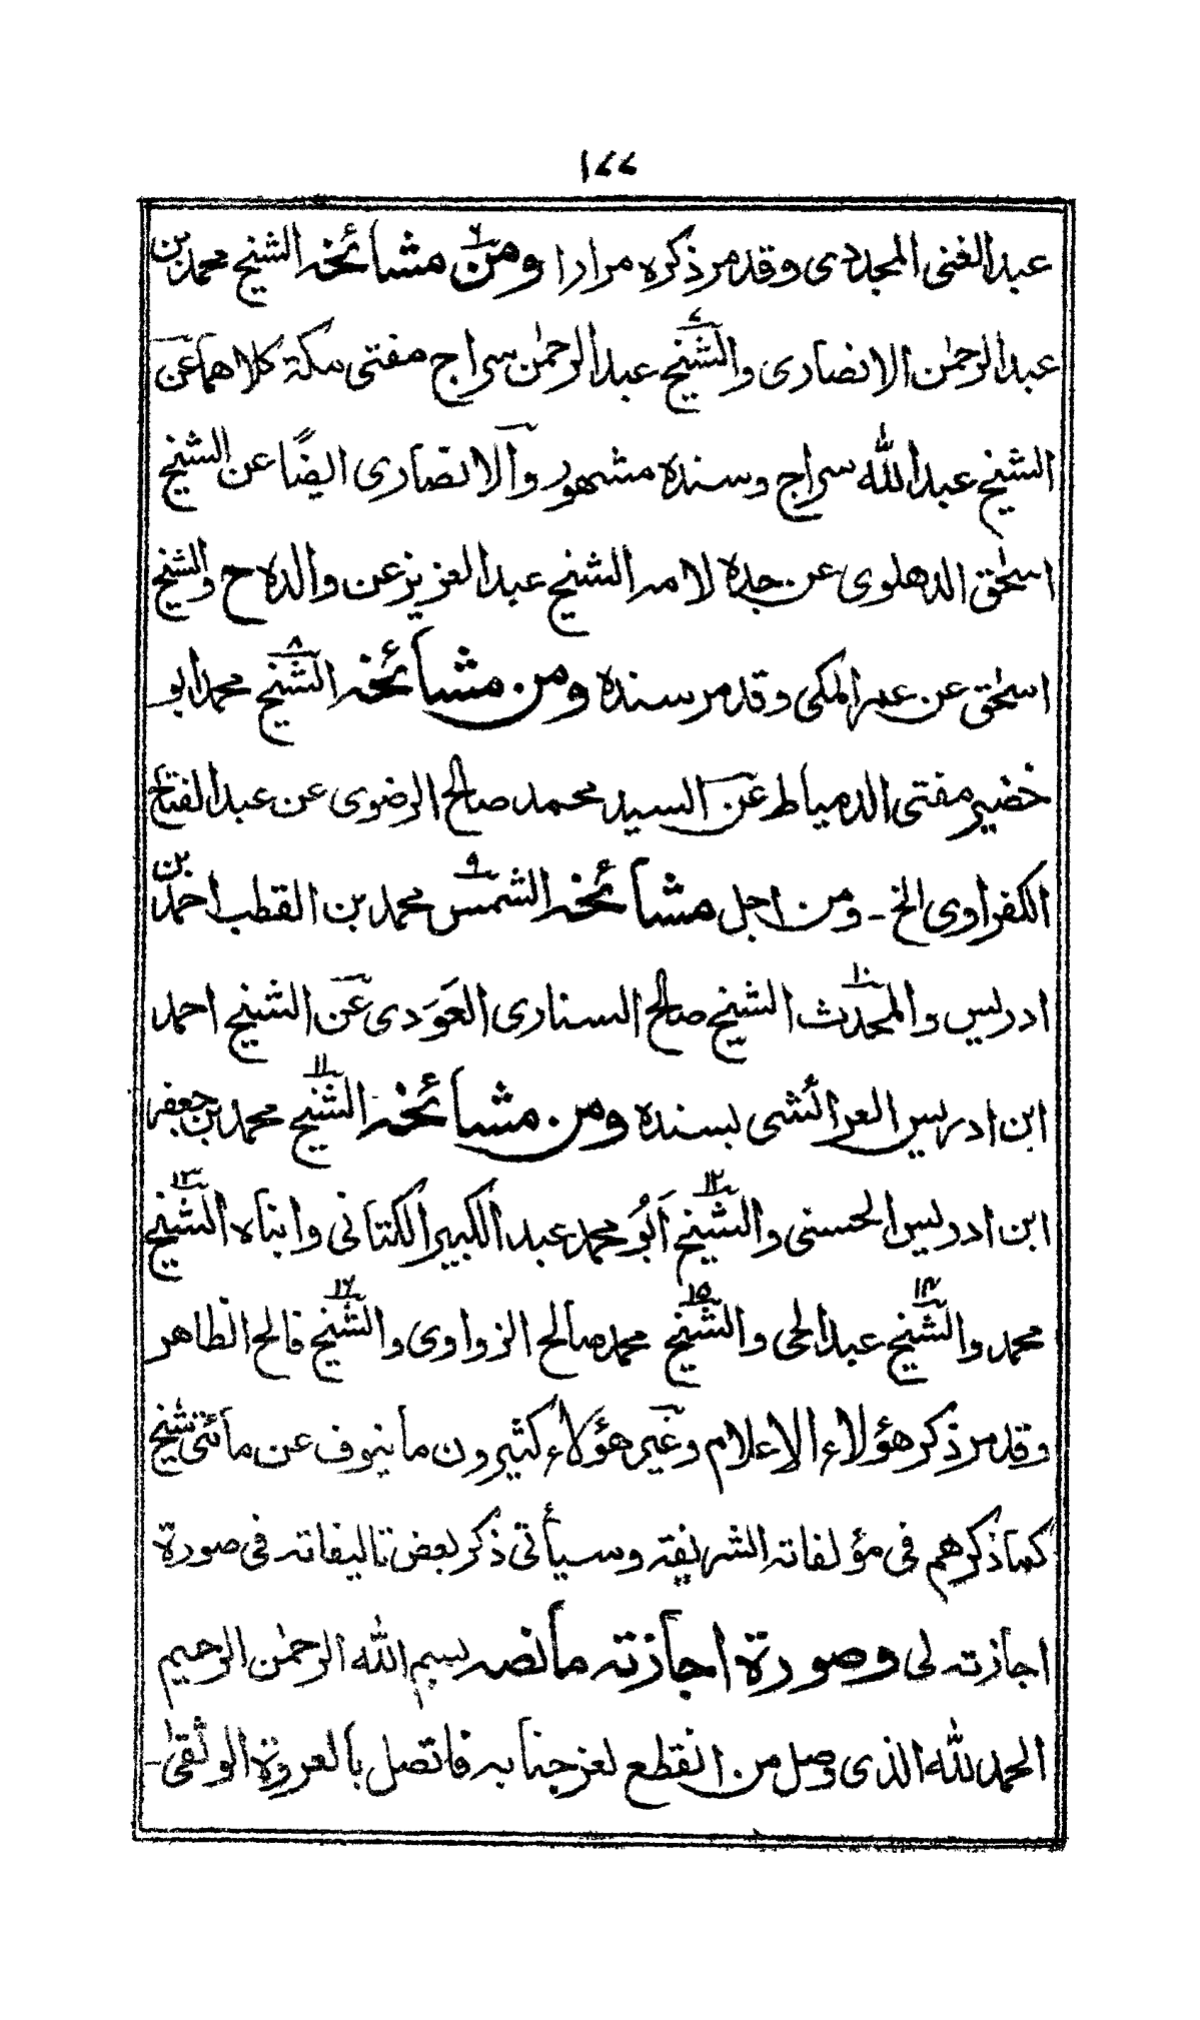 ١٧٧
عبدالغنی المجددی وقد مر ذکره مرارا ومن۶ مشائخه الشیخ محمد بن
عبدالرحمٰن الانصاری والشیخ۷ عبدالرحمٰن سراج مفتی مکة کلاهما عن
الشیخ عبدالله سراج وسنده مشهور والانصاری ایضًا عن الشیخ
اسحٰق الدهلوی عن جده لامه الشیخ عبدالعزیز عن والده ح والشیخ
اسحٰق عن عمر المکی وقد مر سنده ومن مشائخه الشیخ۸ محمد ابو
خضیر مفتی الدمیاط عن السید محمد صالح الرضوی عن عبدالفتاح
الکفراوی الخ - ومن اجل مشائخه الشمس۹ محمد بن القطب احمد بن
ادریس والمحدث۱۰ الشیخ صالح السناری العَوَدی عن الشیخ احمد
ابن ادریس العرائشی بسنده ومن مشائخه الشیخ۱۱ محمد بن جعفر
ابن ادریس الحسنی والشیخ۱۲ اَبُو محمد عبدالکبیر الکتانی وابناه الشیخ۱۳
محمد والشیخ۱۴ عبدالحی والشیخ۱۵ محمد صالح الزواوی والشیخ۱۶ فالح الظاهر
وقد مر ذکر هؤلاء الاعلام وغیر هؤلاء کثیرون ما ینوف عن مأتی شیخ
کما ذکرهم فی مؤلفاته الشریفة وسیأتی ذکر بعض تالیفاته فی صورة
اجازته لی وصورة اجازته مانصه بسم الله الرحمٰن الرحیم
الحمد لله الذی وصل من انقطع لعز جنابه فاتصل بالعروة الوثقیٰ-